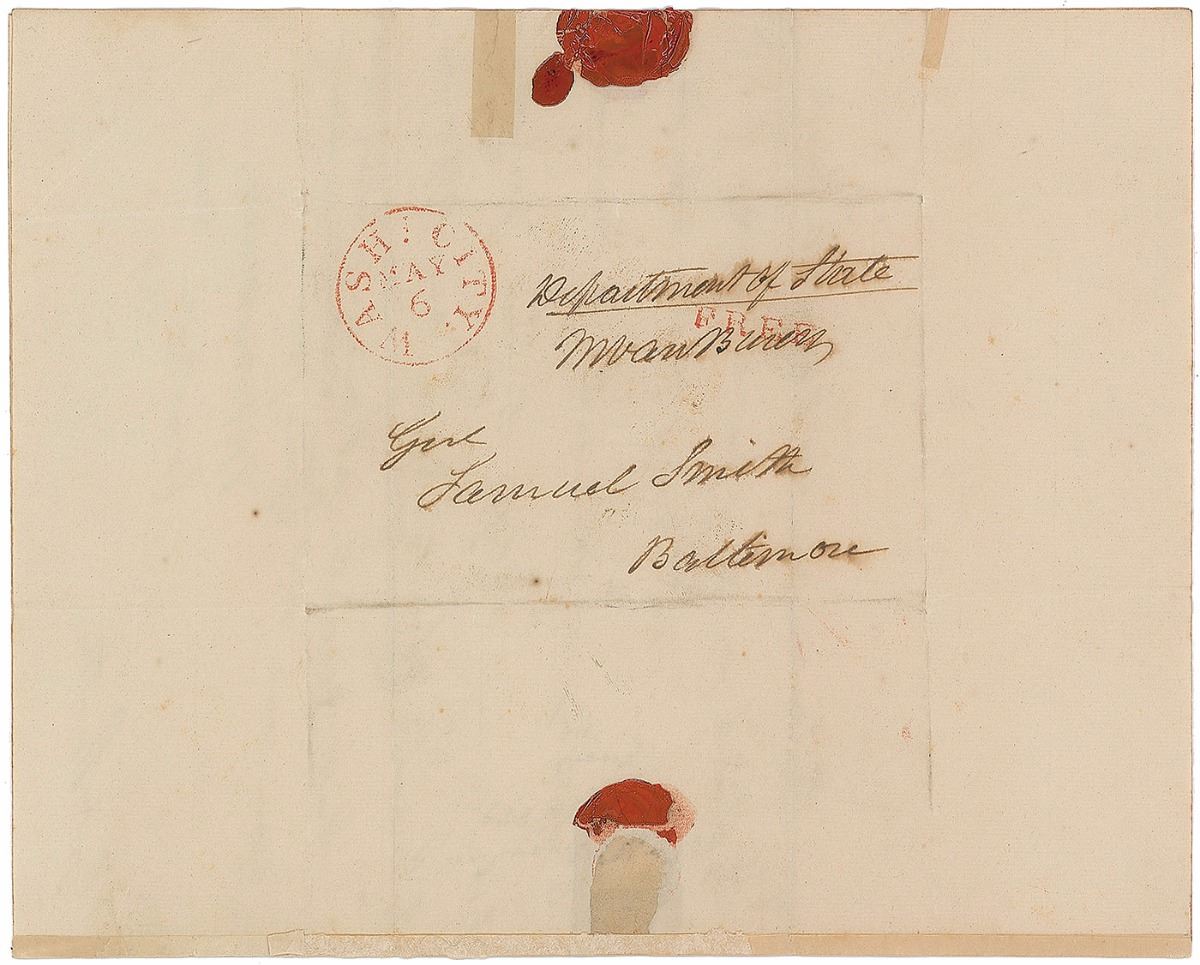 WASH! CITY.
MAY
6
Department of State
FREE
MVanBuren
Genl
Samuel Smith
Baltimore